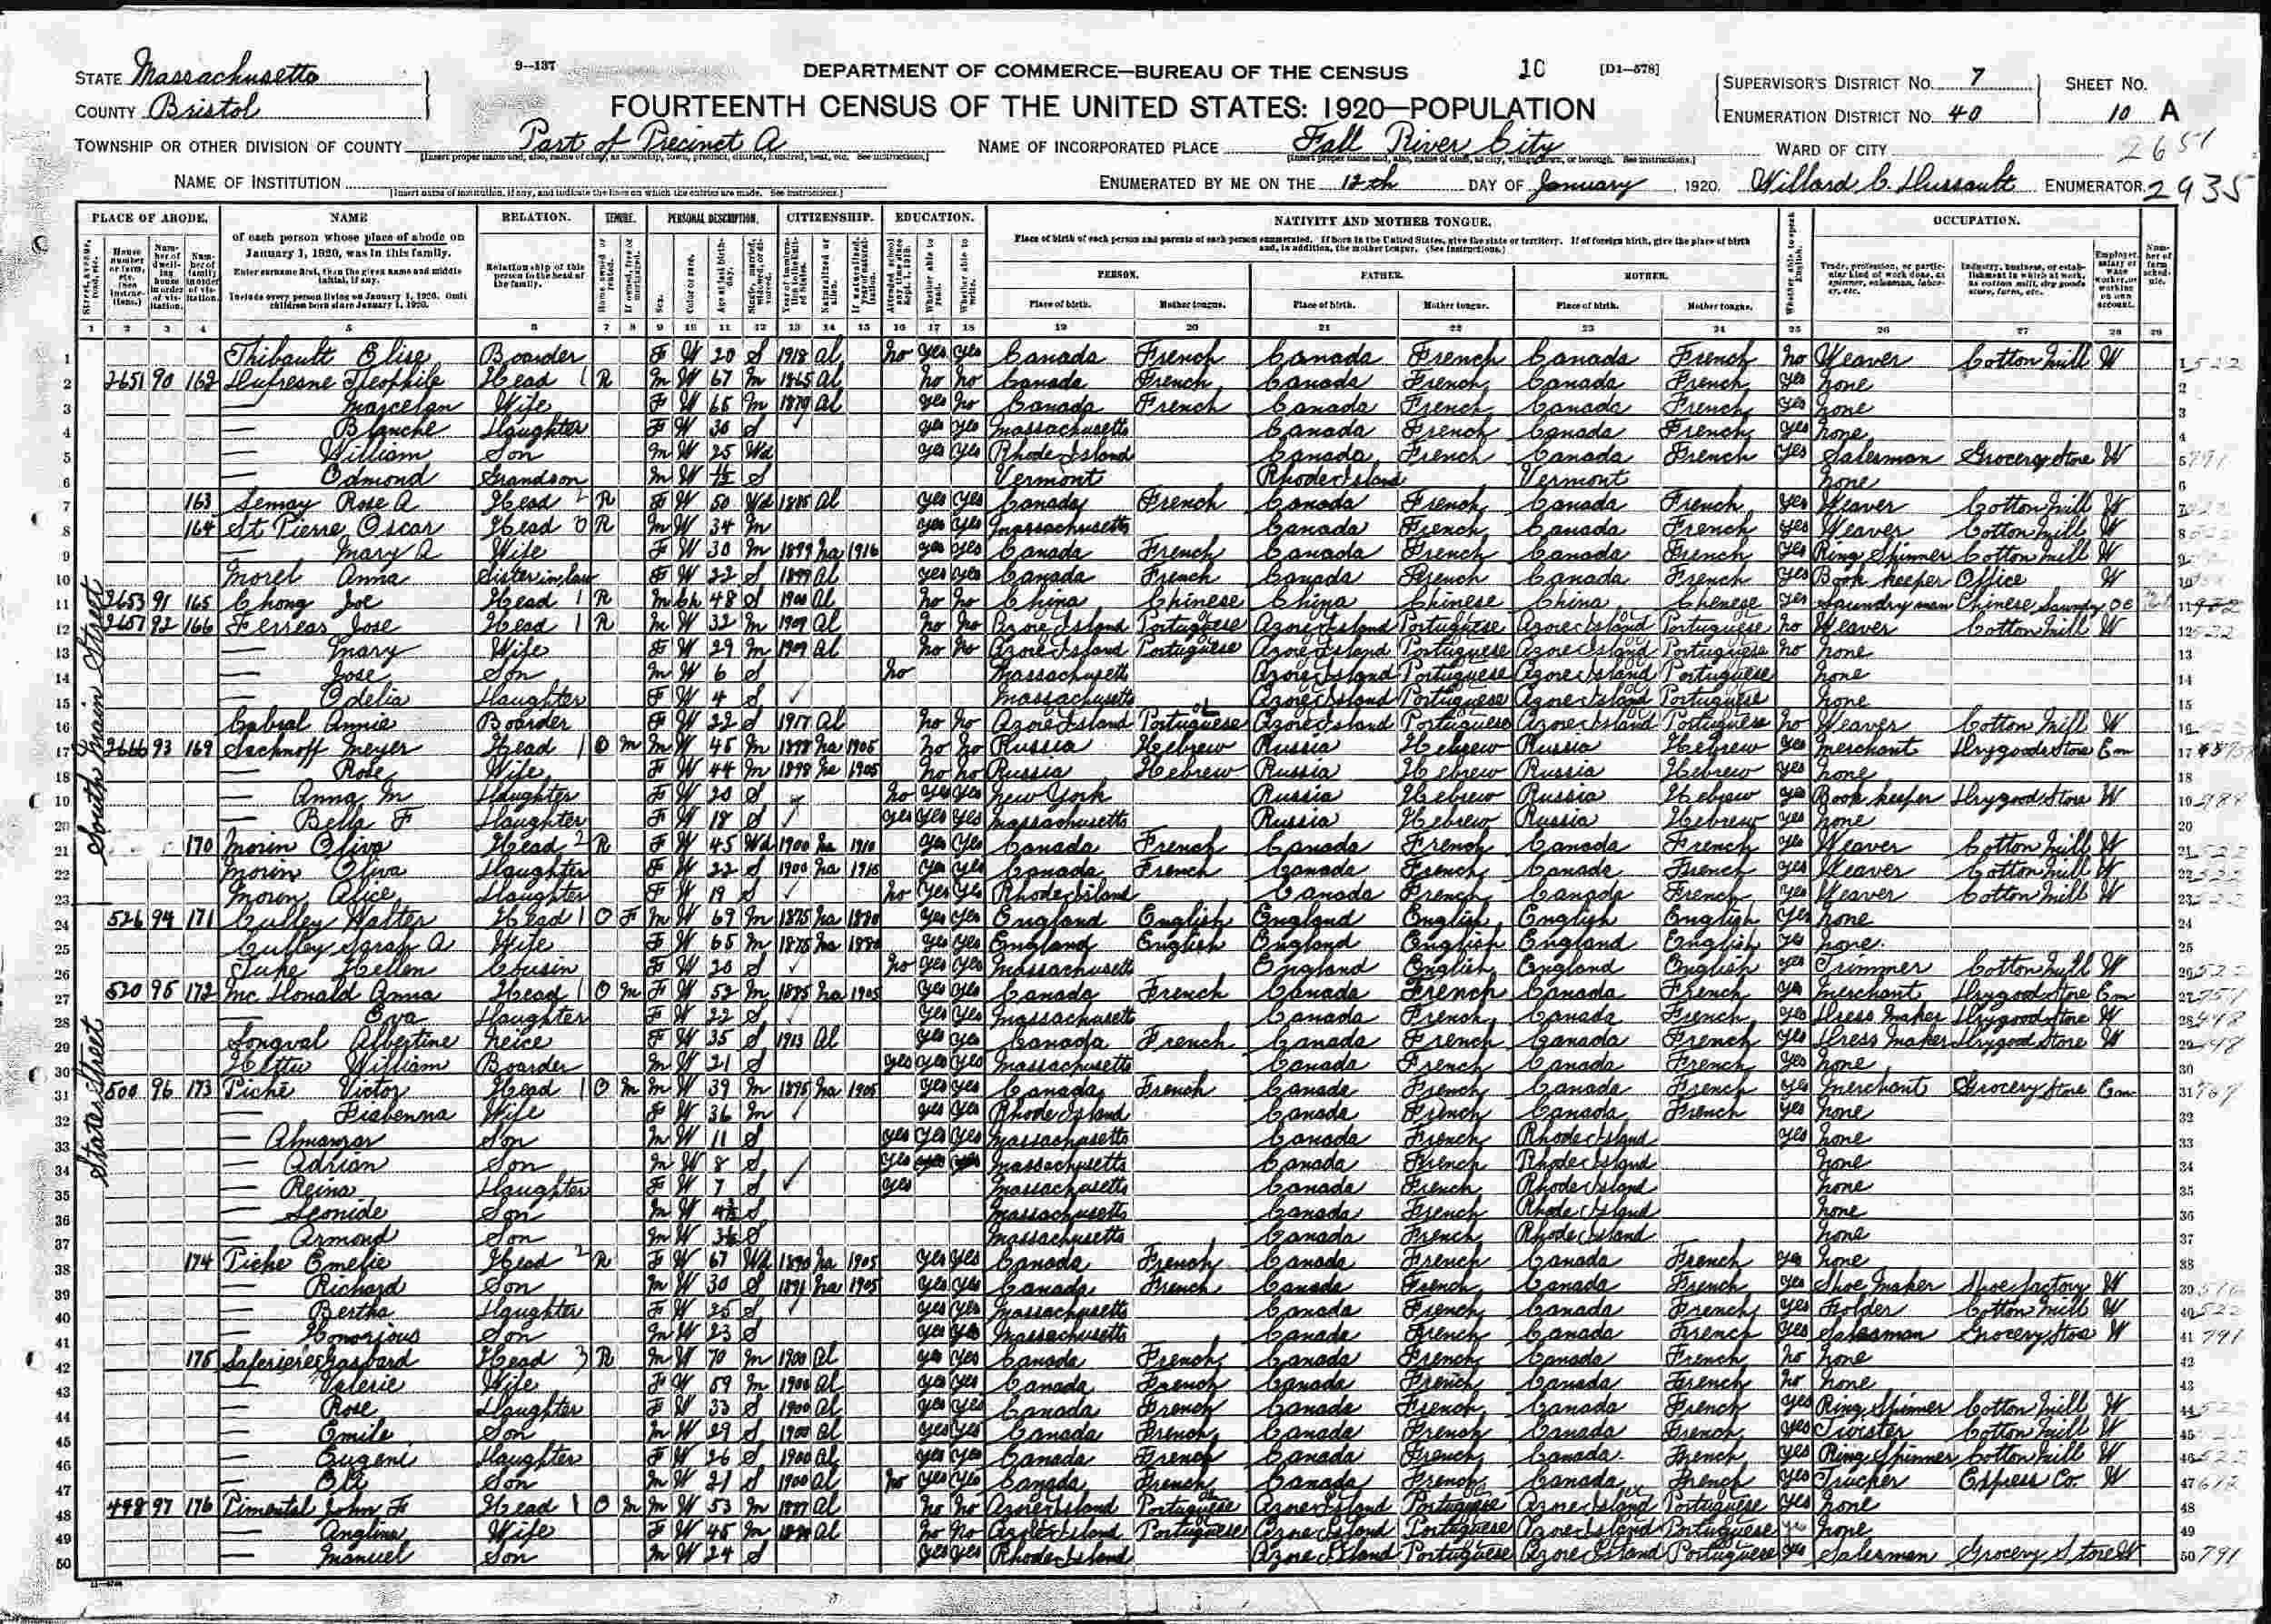 9—137
DEPARTMENT OF COMMERCE—BUREAU OF THE CENSUS
10
[D1—578]
STATE Massachusetts
COUNTY Bristol
FOURTEENTH CENSUS OF THE UNITED STATES: 1920—POPULATION
SUPERVISOR'S DISTRICT No. 7
ENUMERATION DISTRICT No. 40
SHEET No.
10 A
TOWNSHIP OR OTHER DIVISION OF COUNTY Part of Precinct A
NAME OF INCORPORATED PLACE Fall River City
WARD OF CITY
2651
NAME OF INSTITUTION
ENUMERATED BY ME ON THE 12th DAY OF January, 1920.
ENUMERATOR
2935
PLACE OF ABODE. NAME RELATION. TENURE. PERSONAL DESCRIPTION. CITIZENSHIP. EDUCATION. NATIVITY AND MOTHER TONGUE. OCCUPATION.
of each person whose place of abode on January 1, 1920, was in this family.
Enter surname first, then the given name and middle initial, if any.
Include every person living on January 1, 1920. Omit children born since January 1, 1920.
Relationship of this person to the head of the family.
Place of birth of each person and parents of each person enumerated. If born in the United States, give the state or territory. If of foreign birth, give the place of birth and, in addition, the mother tongue. (See Instructions.)
PERSON. FATHER. MOTHER.
Place of birth. Mother tongue. Place of birth. Mother tongue. Place of birth. Mother tongue.
1 2 3 4 5 6 7 8 9 10 11 12 13 14 15 16 17 18 19 20 21 22 23 24 25 26 27 28 29
South Main Street
State Street
1 Thibault Elise Boarder F W 20 S 1918 Al no yes yes Canada French Canada French Canada French no Weaver Cotton Mill W 1 522
2 2651 90 162 Dufresne Theophile Head 1 R M W 67 M 1865 Al no no Canada French Canada French Canada French yes None 2
3 — Marcelan Wife F W 65 M 1879 Al yes no Canada French Canada French Canada French yes None 3
4 — Blanche Daughter F W 30 S yes yes Massachusetts Canada French Canada French yes None 4
5 — William Son M W 25 Wd yes yes Rhode Island Canada French Canada French yes Salesman Grocery Store W 5 791
6 — Edmond Grandson M W S Vermont Rhode Island Vermont None 6
7 163 Lemay Rose A Head 2 R F W 50 Wd 1885 Al yes yes Canada French Canada French Canada French yes Weaver Cotton Mill W 7
8 164 St Pierre Oscar Head 0 R M W 34 M yes yes Massachusetts Canada French Canada French yes Weaver Cotton Mill W 8
9 — Mary A Wife F W 30 M 1899 Na 1916 yes yes Canada French Canada French Canada French yes Ring Spinner Cotton Mill W 9
10 Morel Anna Sister in law F W 22 S 1899 Al yes yes Canada French Canada French Canada French yes Book keeper Office W 10
11 2653 91 165 Chong Joe Head 1 R M Ch 48 S 1900 Al no no China Chinese China Chinese China Chinese yes Laundry man Chinese Laundry 11
12 2657 92 166 Ferreas Jose Head 1 R M W 32 M 1909 Al no no Azore Island Portuguese Azore Island Portuguese Azore Island Portuguese no Weaver Cotton Mill W 12 522
13 — Mary Wife F W 29 M 1909 Al no no Azore Island Portuguese Azore Island Portuguese Azore Island Portuguese no None 13
14 — Jose Son M W 6 S no Massachusetts Azore Island Portuguese Azore Island Portuguese None 14
15 — Odelia Daughter F W 4 S Massachusetts Azore Island Portuguese Azore Island Portuguese None 15
16 Cabral Annie Boarder F W 22 S 1917 Al no no Azore Island Portuguese Azore Island Portuguese Azore Island Portuguese no Weaver Cotton Mill W 16
17 2666 93 169 Sachnoff Meyer Head 1 O M M W 45 M 1898 Na 1905 no no Russia Hebrew Russia Hebrew Russia Hebrew yes Merchant Drygoods Store Em 17
18 — Rose Wife F W 44 M 1898 Na 1905 no no Russia Hebrew Russia Hebrew Russia Hebrew yes None 18
19 — Anna M Daughter F W 20 S no yes yes New York Russia Hebrew Russia Hebrew yes Book keeper Drygood Store W 19
20 — Bella F Daughter F W 18 S yes yes yes Massachusetts Russia Hebrew Russia Hebrew yes None 20
21 170 Morin Oliva Head 2 R F W 45 Wd 1900 Na 1910 yes yes Canada French Canada French Canada French yes Weaver Cotton Mill W 21 522
22 Morin Oliva Daughter F W 22 S 1900 Na yes yes Canada French Canada French Canada French yes Weaver Cotton Mill W 22 522
23 Morin Alice Daughter F W 19 S no yes yes Rhode Island Canada French Canada French yes Weaver Cotton Mill W 23 522
24 526 94 171 Culley Walter Head 1 O F M W 69 M 1875 Na 1880 yes yes England English England English English English yes None 24
25 Culley Sarah A Wife F W 65 M 1875 Na 1880 yes yes England English England English England English yes None 25
26 Hellen Cousin F W 20 S no yes yes Massachusetts England English England English yes Trimmer Cotton Mill W 26 522
27 520 95 172 Mc Donald Anna Head 1 O M F W 52 M 1885 Na 1905 yes yes Canada French Canada French Canada French yes Merchant Drygood Store Em 27
28 — Eva Daughter F W 22 S yes yes Massachusetts Canada French Canada French yes Dress Maker Drygood Store W 28
29 Longval Albertine Neice F W 35 S 1913 Al yes yes Canada French Canada French Canada French yes Dress Maker Drygood Store W 29
30 Hettu William Boarder M W 21 S yes yes yes Massachusetts Canada French Canada French yes None 30
31 500 96 173 Piché Victor Head 1 O M M W 39 M 1895 Na 1905 yes yes Canada French Canada French Canada French yes Merchant Grocery Store Em 31
32 — Wife F W 36 M yes yes Rhode Island Canada French Canada French yes None 32
33 — Almanzar Son M W 11 S yes yes yes Massachusetts Canada French Rhode Island yes None 33
34 — Adrian Son M W 8 S yes Massachusetts Canada French Rhode Island None 34
35 — Reina Daughter F W 7 S yes Massachusetts Canada French Rhode Island None 35
36 — Leonide Son M W S Massachusetts Canada French Rhode Island None 36
37 — Armond Son M W S Massachusetts Canada French Rhode Island None 37
38 174 Piche Emelie Head 2 R F W 67 Wd 1890 Na 1905 yes yes Canada French Canada French Canada French yes None 38
39 — Richard Son M W 30 S 1891 Na 1905 yes yes Canada French Canada French Canada French yes Shoe Maker Shoe factory W 39
40 — Bertha Daughter F W 25 S yes yes Massachusetts Canada French Canada French yes Folder Cotton Mill W 40 522
41 — Honorious Son M W 23 S yes yes Massachusetts Canada French Canada French yes Salesman Grocery Stoe W 41 791
42 175 Laferiere Gasbard Head 3 R M W 70 M 1900 Al yes yes Canada French Canada French Canada French no None 42
43 — Valerie Wife F W 59 M 1900 Al yes yes Canada French Canada French Canada French no None 43
44 — Rose Daughter F W 33 S 1900 Al yes yes Canada French Canada French Canada French yes Ring Spinner Cotton Mill W 44
45 — Emile Son M W 29 S 1900 Al yes yes Canada French Canada French Canada French yes Twister Cotton Mill W 45
46 — Eugeni Daughter F W 26 S 1900 Al yes yes Canada French Canada French Canada French yes Ring Spinner Cotton Mill W 46 522
47 — Son M W 21 S 1900 Al no yes yes Canada French Canada French Canada French yes Trucker Express Co. W 47
48 498 97 176 Pimental John F Head 1 O M M W 53 M 1887 Al no no Azore Island Portuguese Azore Island Portuguese Azore Island Portuguese yes None 48
49 — Anglina Wife F W 45 M Al no no Azore Island Portuguese Azore Island Portuguese Azore Island Portuguese yes None 49
50 — Manuel Son M W 24 S yes yes Rhode Island Azore Island Portuguese Azore Island Portuguese yes Salesman Grocery Store W 50 791